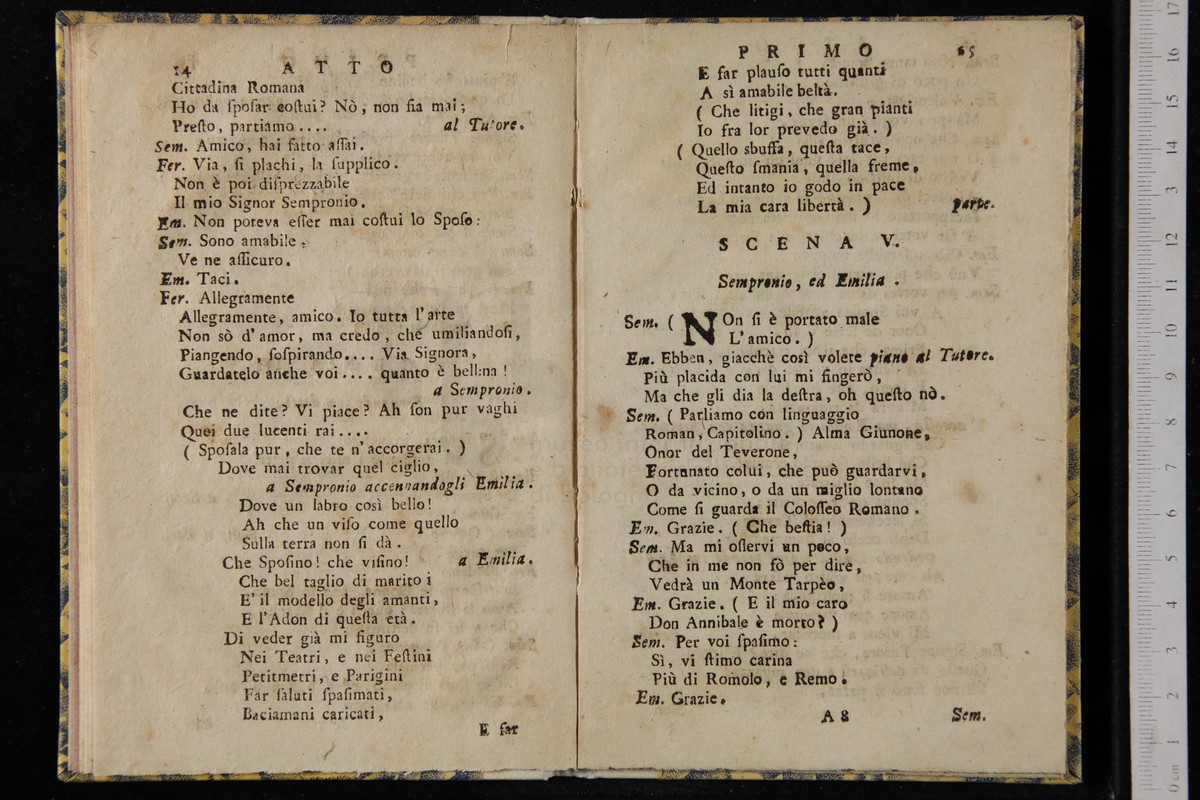 14 ATTO
Cittadina Romana
Ho da ſpoſar coſtui? Nò, non ſia mai;
Preſto, partiamo.... al Tutore.
Sem. Amico, hai fatto aſſai.
Fer. Via, ſi plachi, la ſupplico.
Non è poi diſprezzabile
Il mio Signor Sempronio.
Em. Non poteva eſſer mai coſtui lo Spoſo:
Sem. Sono amabile,
Ve ne aſſicuro.
Em. Taci.
Fer. Allegramente
Allegramente, amico. Io tutta l'arte
Non sò d'amor, ma credo, che umiliandoſi,
Piangendo, ſoſpirando.... Via Signora,
Guardatelo anche voi.... quanto è bellina!
a Sempronio.
Che ne dite? Vi piace? Ah ſon pur vaghi
Quei due lucenti rai....
( Spoſala pur, che te n'accorgerai. )
Dove mai trovar quel ciglio,
a Sempronio accennandogli Emilia.
Dove un labro così bello!
Ah che un viſo come quello
Sulla terra non ſi dà.
Che Spoſino! che viſino! a Emilia.
Che bel taglio di marito!
E' il modello degli amanti,
E l'Adon di queſta età.
Di veder già mi figuro
Nei Teatri, e nei Feſtini
Petitmetri, e Parigini
Far ſaluti ſpaſimati,
Baciamani caricati,
E far
PRIMO. 15
E far plauſo tutti quanti
A sì amabile beltà.
( Che litigi, che gran pianti
Io fra lor prevedo già. )
( Quello sbuffa, queſta tace,
Queſto ſmania, quella freme,
Ed intanto io godo in pace
La mia cara libertà. ) parte.
SCENA V.
Sempronio, ed Emilia.
Sem. ( NOn ſi è portato male
L'amico. )
Em. Ebben, giacchè così volete piano al Tutore.
Più placida con lui mi fingerò,
Ma che gli dia la deſtra, oh queſto nò.
Sem. ( Parliamo con linguaggio
Roman, Capitolino. ) Alma Giunone,
Onor del Teverone,
Fortunato colui, che può guardarvi,
O da vicino, o da un miglio lontano
Come ſi guarda il Coloſſeo Romano.
Em. Grazie. ( Che beſtia! )
Sem. Ma mi oſſervi un poco,
Che in me non fò per dire,
Vedrà un Monte Tarpèo,
Em. Grazie. ( E il mio caro
Don Annibale è morto? )
Sem. Per voi ſpaſimo:
Sì, vi ſtimo carina
Più di Romolo, e Remo.
Em. Grazie.
A 8 Sem.